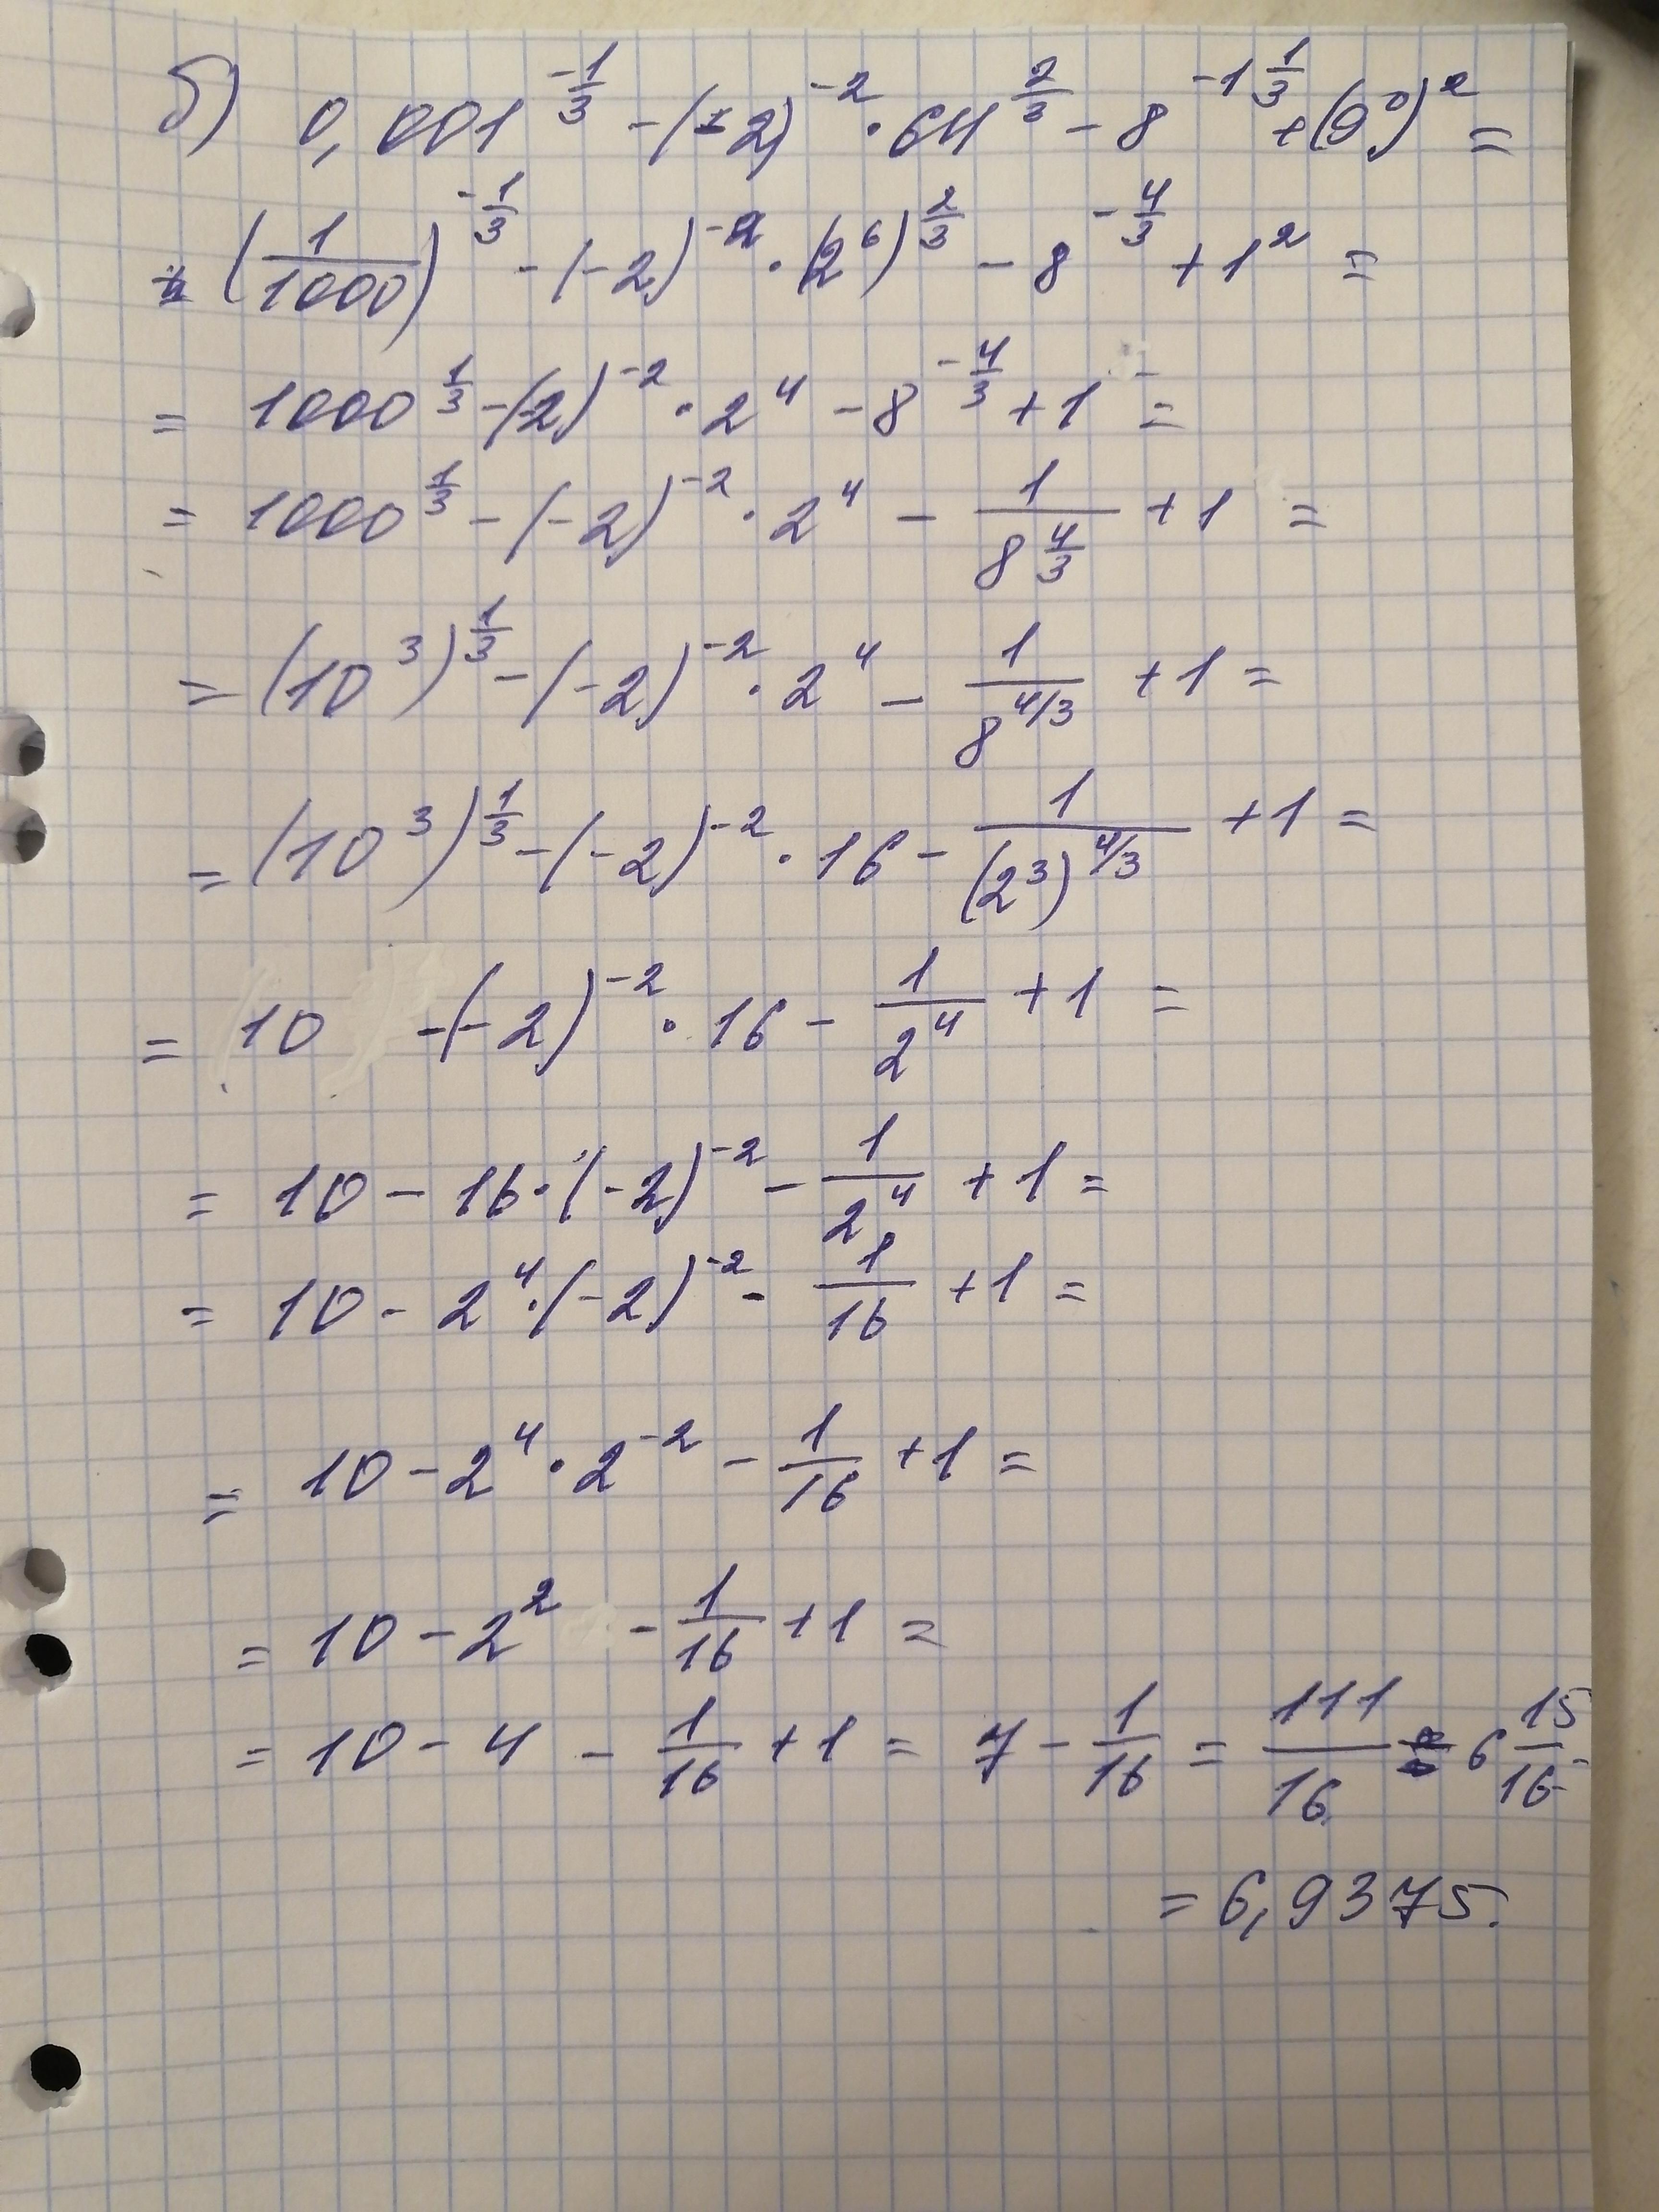 б) 0,001^{-\frac{1}{3}} - (-2)^{-2} \cdot 64^{\frac{2}{3}} - 8^{-1\frac{1}{3}} + (9^0)^2 =
= (\frac{1}{1000})^{-\frac{1}{3}} - (-2)^{-2} \cdot (2^6)^{\frac{2}{3}} - 8^{-\frac{4}{3}} + 1^2 =
= 1000^{\frac{1}{3}} - (-2)^{-2} \cdot 2^4 - 8^{-\frac{4}{3}} + 1 =
= 1000^{\frac{1}{3}} - (-2)^{-2} \cdot 2^4 - \frac{1}{8^{\frac{4}{3}}} + 1 =
= (10^3)^{\frac{1}{3}} - (-2)^{-2} \cdot 2^4 - \frac{1}{8^{4/3}} + 1 =
= (10^3)^{\frac{1}{3}} - (-2)^{-2} \cdot 16 - \frac{1}{(2^3)^{4/3}} + 1 =
= 10 - (-2)^{-2} \cdot 16 - \frac{1}{2^4} + 1 =
= 10 - 16 \cdot (-2)^{-2} - \frac{1}{2^4} + 1 =
= 10 - 2^4 \cdot (-2)^{-2} - \frac{1}{16} + 1 =
= 10 - 2^4 \cdot 2^{-2} - \frac{1}{16} + 1 =
= 10 - 2^2 - \frac{1}{16} + 1 =
= 10 - 4 - \frac{1}{16} + 1 = 7 - \frac{1}{16} = \frac{111}{16} = 6\frac{15}{16} =
= 6,9375.